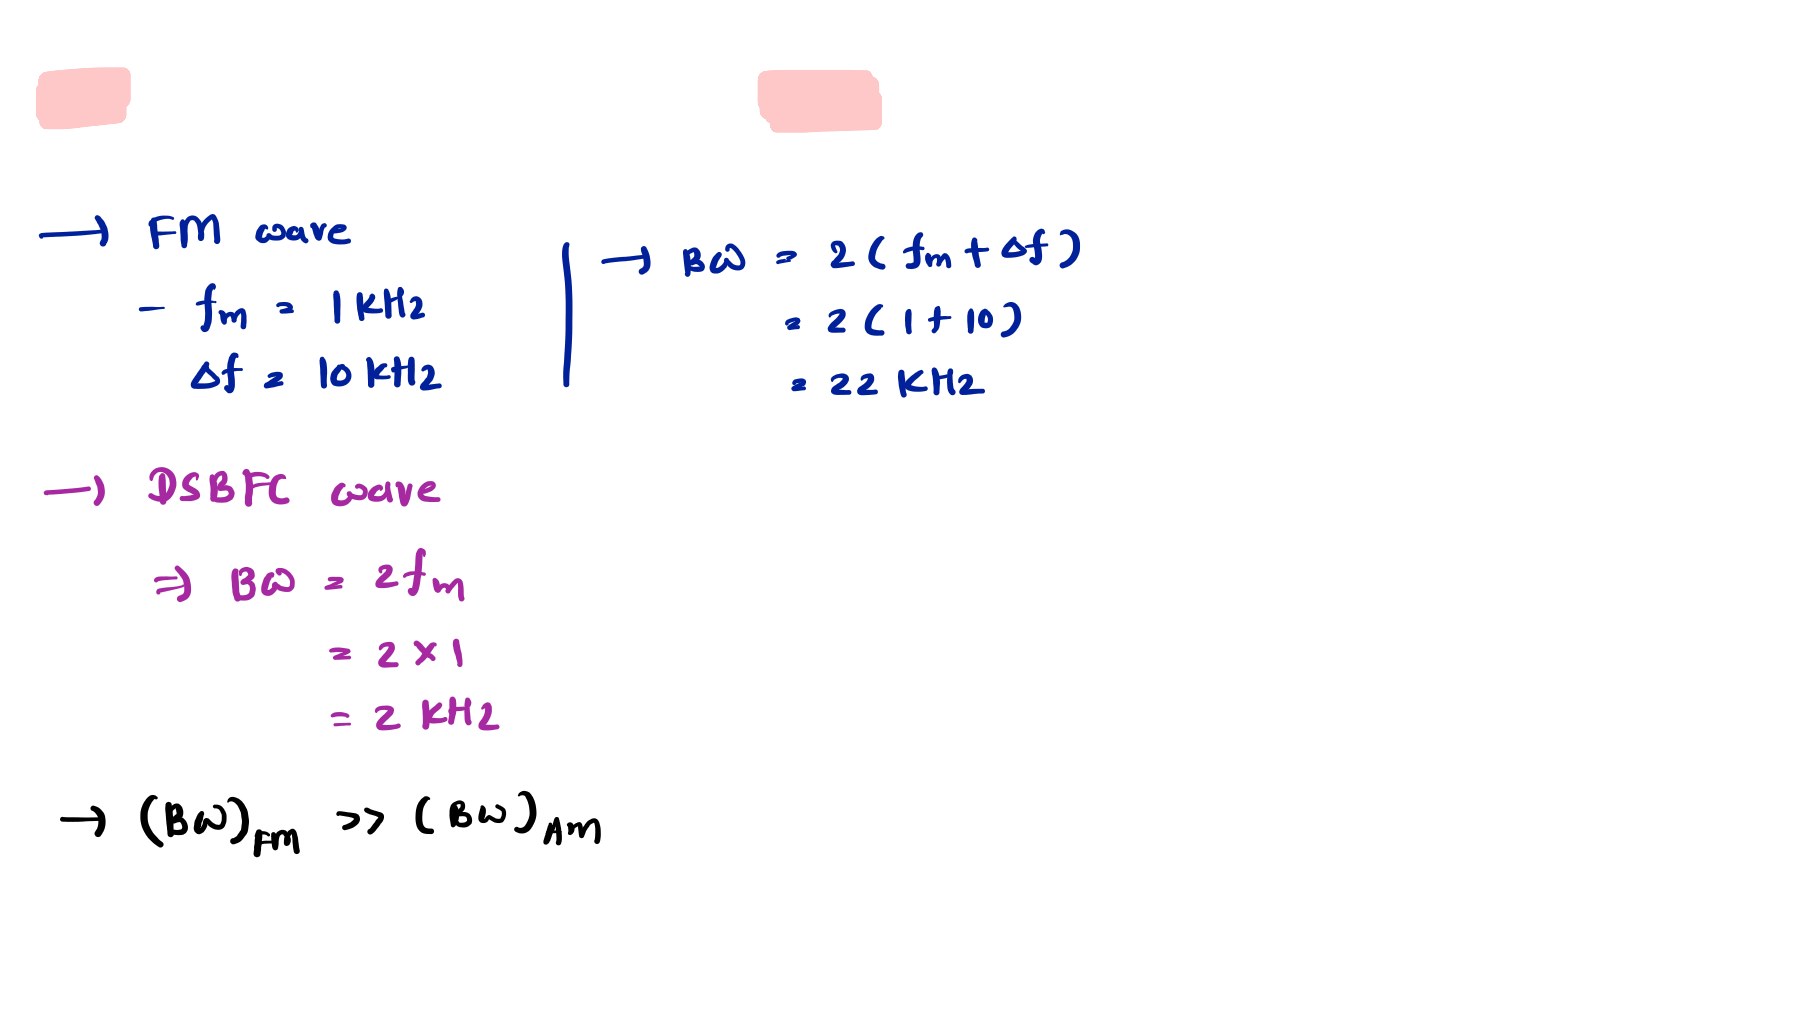 → FM wave
- fm = 1 KHz
Δf = 10 KHz
→ BW = 2 (fm + Δf)
= 2 (1 + 10)
= 22 KHz
→ DSBFC wave
⇒ BW = 2fm
= 2 × 1
= 2 KHz
→ (BW)FM >> (BW)AM